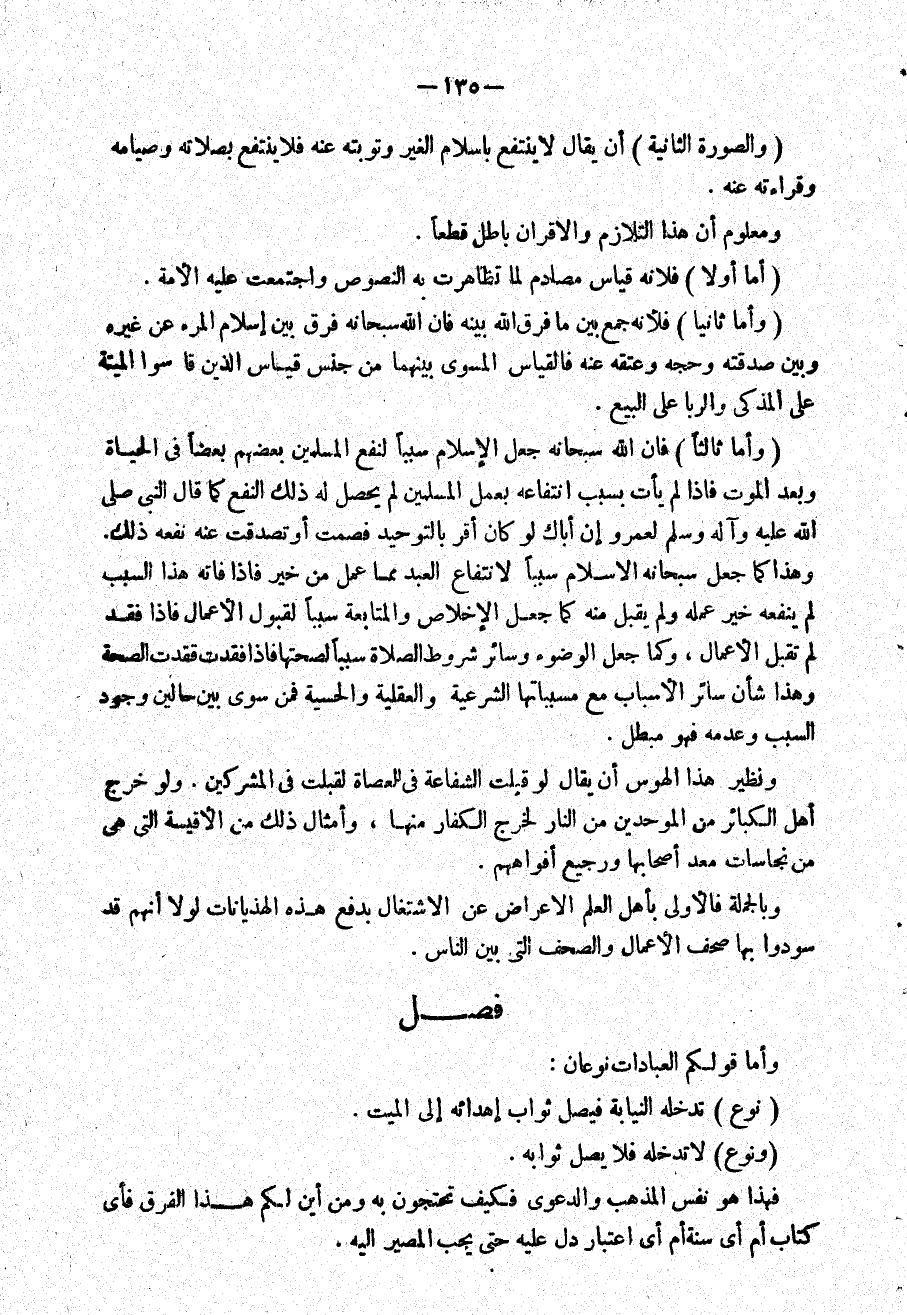 — ١٣٥ —
( والصورة الثانية ) أن يقال لاينتفع باسلام الغير وتوبته عنه فلاينتفع بصلاته وصيامه
وقراءته عنه .
ومعلوم أن هذا التلازم والاقران باطل قطعاً .
( أما أولا ) فلانه قياس مصادم لما تظاهرت به النصوص واجتمعت عليه الأمة .
( وأما ثانيا ) فلأنه جمع بين ما فرق الله بينه فان الله سبحانه فرق بين إسلام المرء عن غيره
وبين صدقته وحجه وعتقه عنه فالقياس المسوى بينهما من جنس قياس الذين قاسوا الميتة
على المذكى والربا على البيع .
( وأما ثالثاً ) فان الله سبحانه جعل الإسلام سبباً لنفع المسلمين بعضهم بعضاً فى الحياة
وبعد الموت فاذا لم يأت بسبب انتفاعه بعمل المسلمين لم يحصل له ذلك النفع كما قال النبى صلى
الله عليه وآله وسلم لعمرو إن أباك لو كان أقر بالتوحيد فصمت أو تصدقت عنه نفعه ذلك.
وهذا كما جعل سبحانه الاسلام سبباً لانتفاع العبد مما عمل من خير فاذا فاته هذا السبب
لم ينفعه خير عمله ولم يقبل منه كما جعل الإخلاص والمتابعة سبباً لقبول الأعمال فاذا فقد
لم تقبل الأعمال ، وكما جعل الوضوء وسائر شروط الصلاة سبباً لصحتها فاذا فقدت فقدت الصحة
وهذا شأن سائر الأسباب مع مسبباتها الشرعية والعقلية والحسية فمن سوى بين حالين وجود
السبب وعدمه فهو مبطل .
ونظير هذا الهوس أن يقال لو قبلت الشفاعة فى العصاة لقبلت فى المشركين . ولو خرج
أهل الكبائر من الموحدين من النار لخرج الكفار منها ، وأمثال ذلك من الأقيسة التى هى
من نجاسات معد أصحابها ورجيع أفواههم .
وبالجملة فالأولى بأهل العلم الاعراض عن الاشتغال بدفع هذه الهذيانات لولا أنهم قد
سودوا بها صحف الأعمال والصحف التى بين الناس .
فصل
وأما قولكم العبادات نوعان :
( نوع ) تدخله النيابة فيصل ثواب إهدائه إلى الميت .
(ونوع) لاتدخله فلا يصل ثوابه .
فهذا هو نفس المذهب والدعوى فكيف تحتجون به ومن أين لكم هذا الفرق فأى
كتاب أم أى سنة أم أى اعتبار دل عليه حتى يجب المصير اليه .